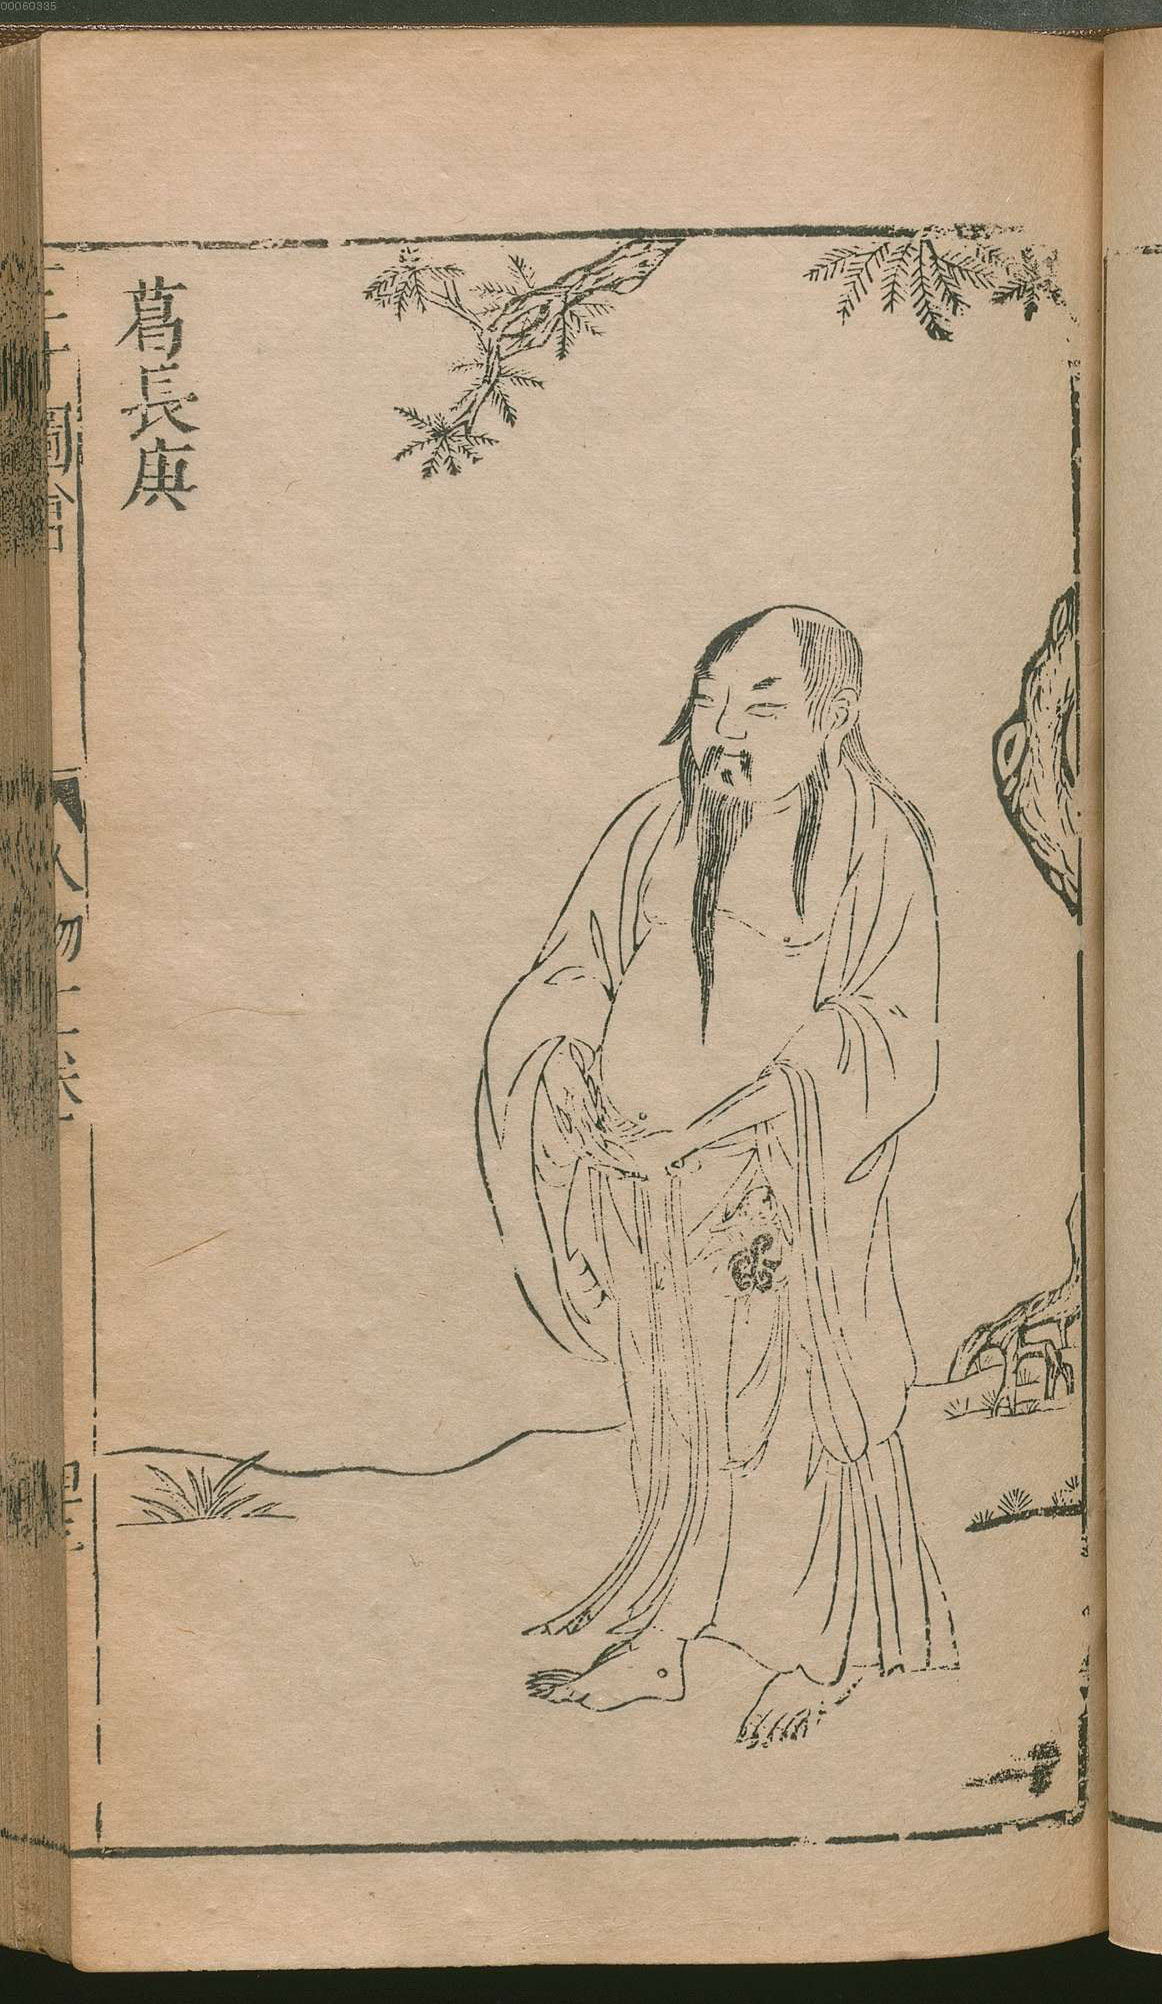 00060385
葛長庚
三才圖會
人物十一卷